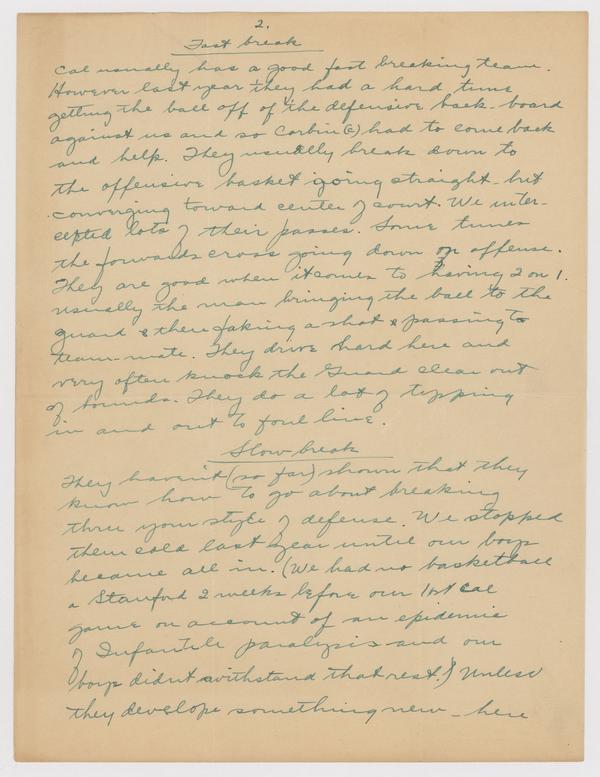 2.
Fast break
Cal usually has a good fast breaking team.
However last year they had a hard time
getting the ball off of the defensive back-board
against us and so Corbin(c) had to come back
and help. They usually break down to
the offensive basket going straight - but
converging toward center of court. We inter-
cepted lots of their passes. Some times
the forwards cross going down on offense.
They are good when it comes to having 2 on 1.
usually the man bringing the ball to the
guard & then faking a shot & passing to
team-mate. They drive hard here and
very often knock the Guard clear out
of bounds. They do a lot of tipping
in and out to foul line.
Slow break
They haven't (so far) shown that they
know how to go about breaking
thru your style of defense. We stopped
them cold last year until our boys
became all in. (We had no basketball
a Stanford 2 weeks before our 1st Cal
game on account of an epidemic
of Infantile paralysis and our
boys didnt withstand that rest.) Unless
they develope something new - here